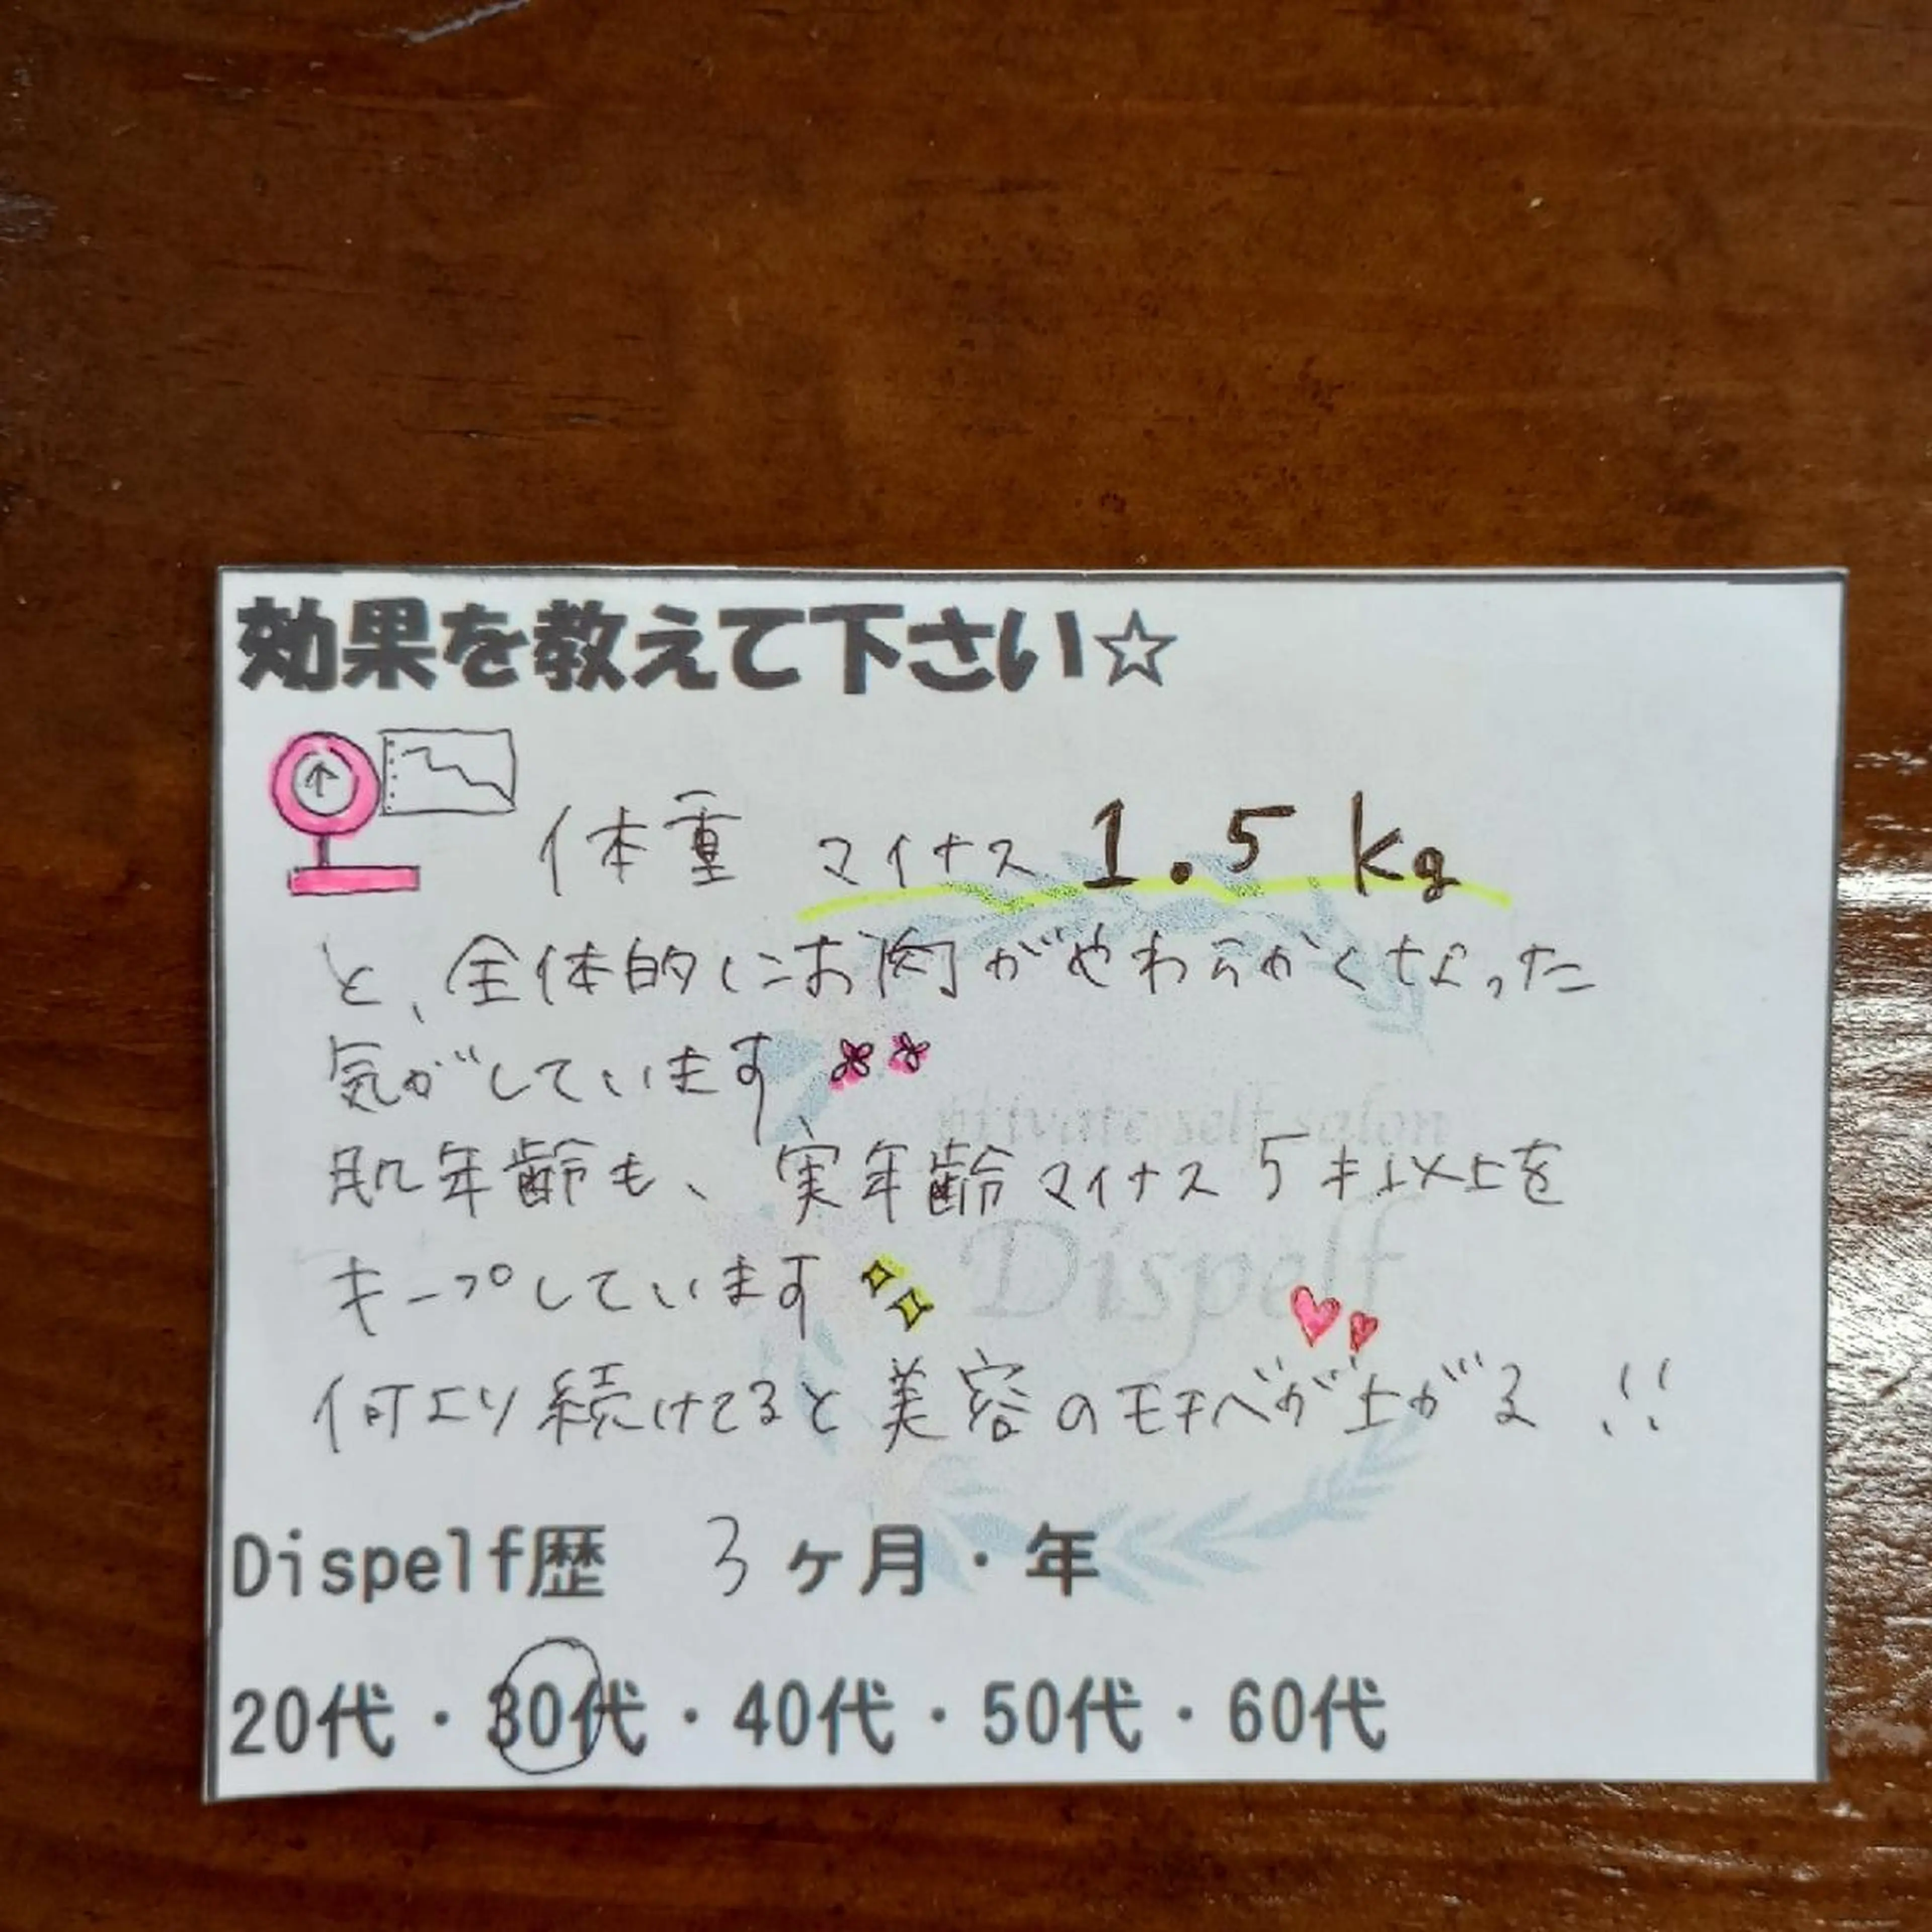 効果を教えて下さい☆
体重 マイナス 1.5 kg
と、全体的にお肉がやわらかくなった
気がしています
private self salon
肌年齢も、実年齢マイナス5才以上を
Dispelf
キープしています
何より続けてると美容のモチベが上がる!!
Dispelf歴 3ヶ月・年
20代・30代・40代・50代・60代